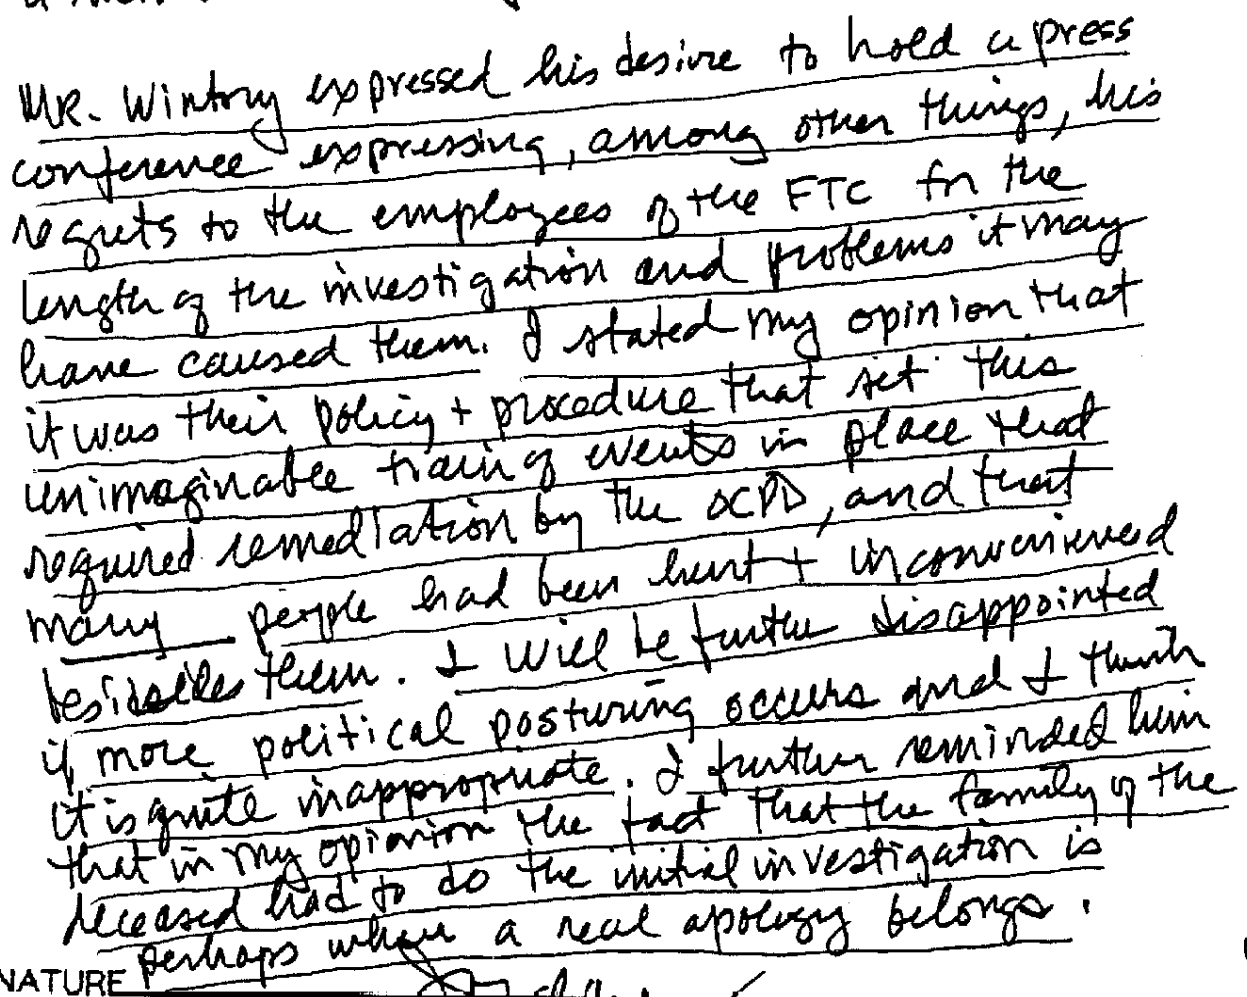 Mr. Wintory expressed his desire to hold a press
conference expressing, among other things, his
regrets to the employees of the FTC for the
length of the investigation and problems it may
have caused them. I stated my opinion that
it was their policy + procedure that set this
unimaginable train of events in place that
required remediation by the OCPD, and that
many people had been hurt + inconvenienced
besides them. I will be further disappointed
if more political posturing occurs and I think
it is quite inappropriate. I further reminded him
that in my opinion the fact that the family of the
deceased had to do the initial investigation is
perhaps where a real apology belongs.
NATURE